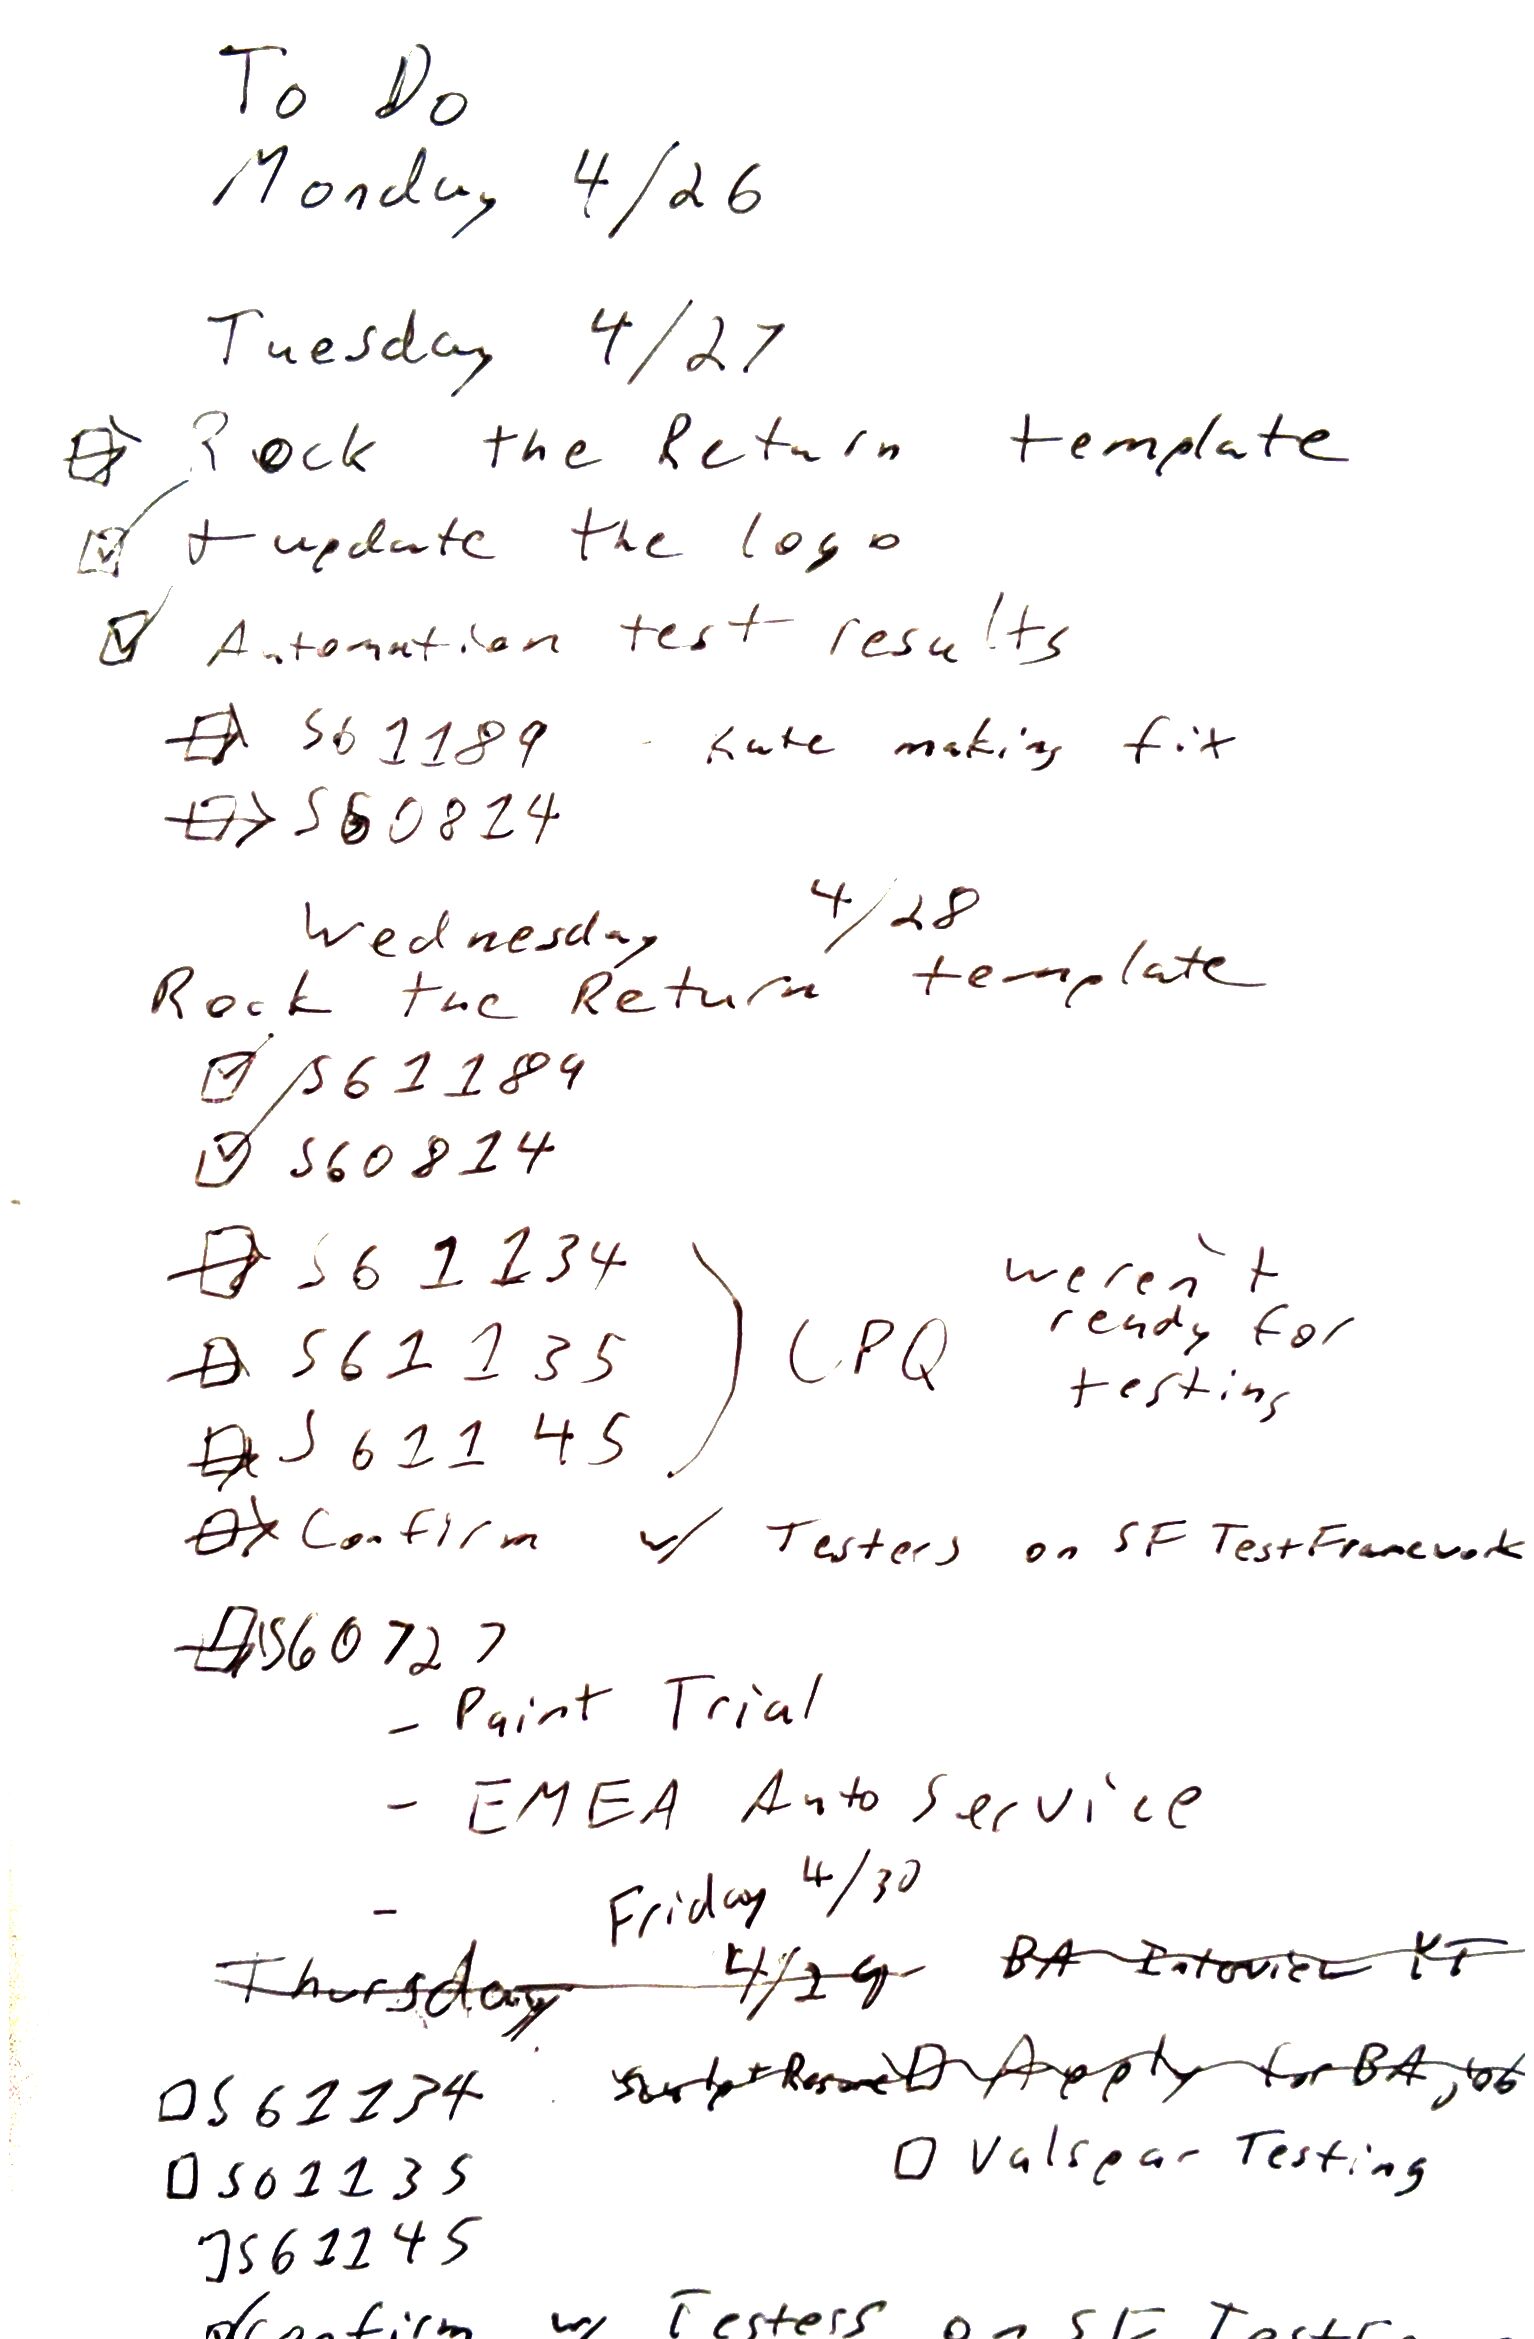 To Do
Monday 4/26
Tuesday 4/27
Rock the Return template
+ update the logo
Automation test results
S61189 - Kate making fix
S60814
Wednesday 4/28
Rock the Return template
S61189
S60814
S61134
S61135
S61145
CPQ
weren't
ready for
testing
Confirm w/ Testers on SF TestFramework
S60727
- Paint Trial
- EMEA Auto Service
-
Friday 4/30
Thursday 4/29 BA Interview KT
S61134 Resume Apply for BA job
S61135 Valspar Testing
S61145
Confirm w/ Testers on SF